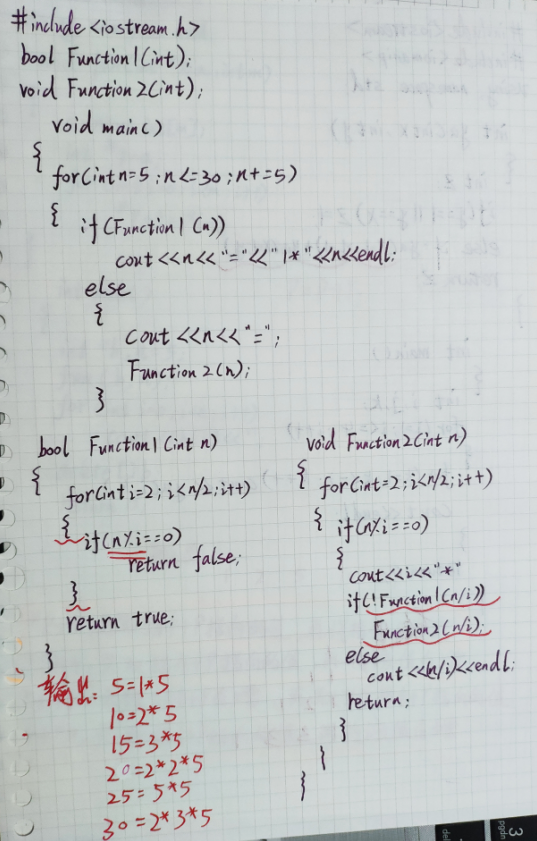 #include <iostream.h>
bool Function1(int);
void Function2(int);
void main()
{
for(int n=5;n<=30;n+=5)
{ if(Function1(n))
cout<<n<<"="<<"1*"<<n<<endl;
else
{
cout<<n<<"=";
Function2(n);
}
bool Function1(int n)
{ for(int i=2;i<n/2;i++)
{ if(n%i==0)
return false;
}
return true;
}
void Function2(int n)
{ for(int=2;i<n/2;i++)
{ if(n%i==0)
{
cout<<i<<"*"
if(!Function1(n/i))
Function2(n/i);
else
cout<<(n/i)<<endl;
return;
}
}
}
输出: 5=1*5
10=2*5
15=3*5
20=2*2*5
25=5*5
30=2*3*5
3
pgdn